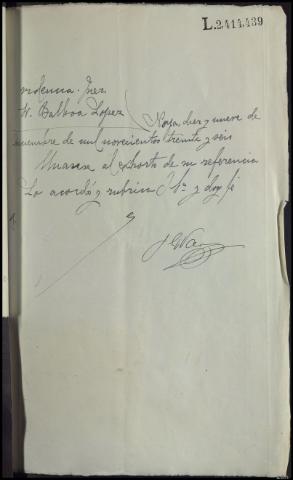 L.2414.439
Providencia Juez
Sr. Balboa Lopez
Noya diez y nueve de
diciembre de mil novecientos treinta y seis
Unase al exhorto de su referencia
Lo acordó y rubrica S Sª y doy fé